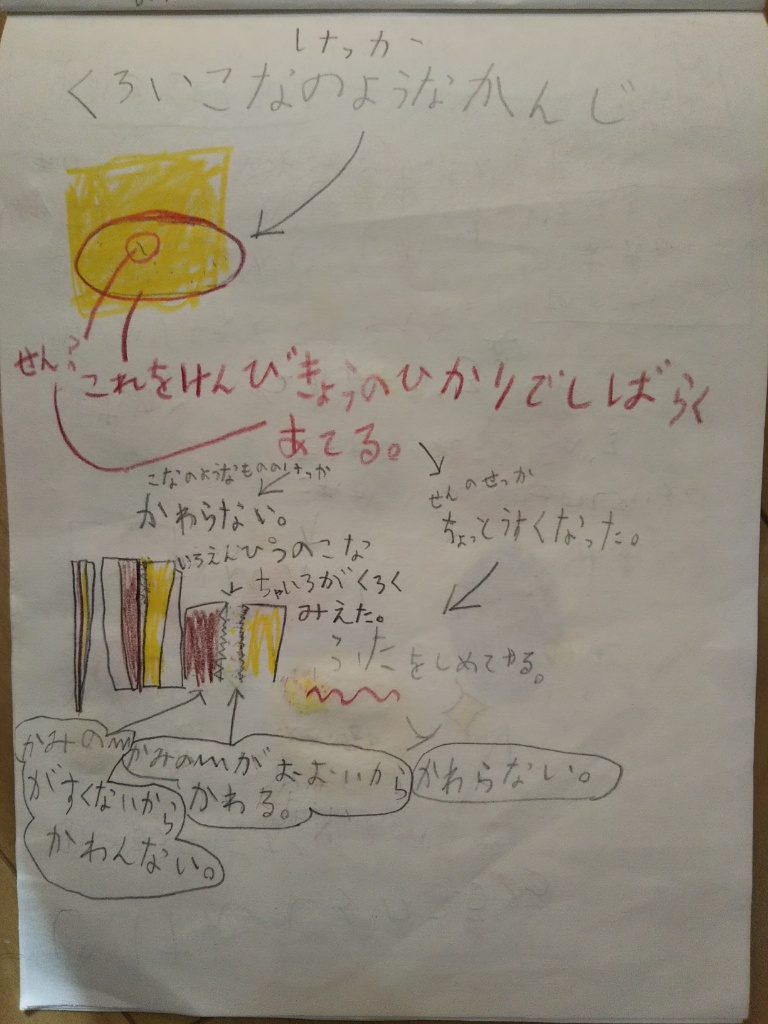 けっかー
くろいこなのようなかんじ
せん?
これをけんびきょうのひかりでしばらく
あてる。
こなのようなもののけっか
かわらない。
せんのせっか
ちょっとうすくなった。
いろえんぴつのこな
ちゃいろがくろく
みえた。
をしめてみる。
かみの
がすくないから
かわんない。
かみの
が
おおいから
かわる。
かわらない。